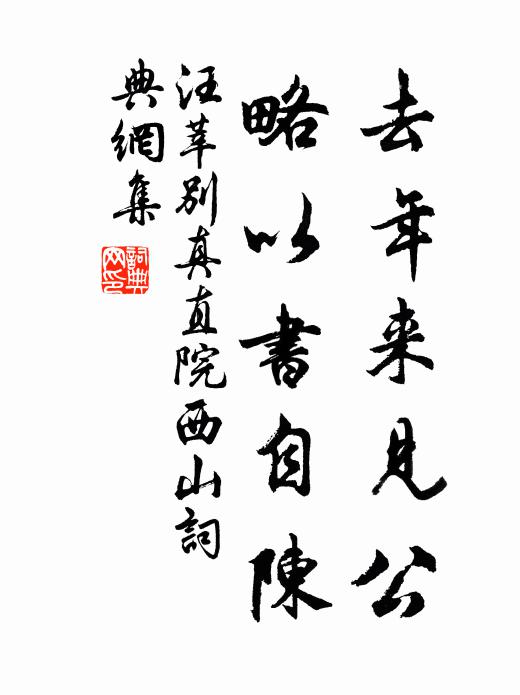 去年来見公
略以書自陳
汪莘別真直院西山詞
典網集
詞典網印